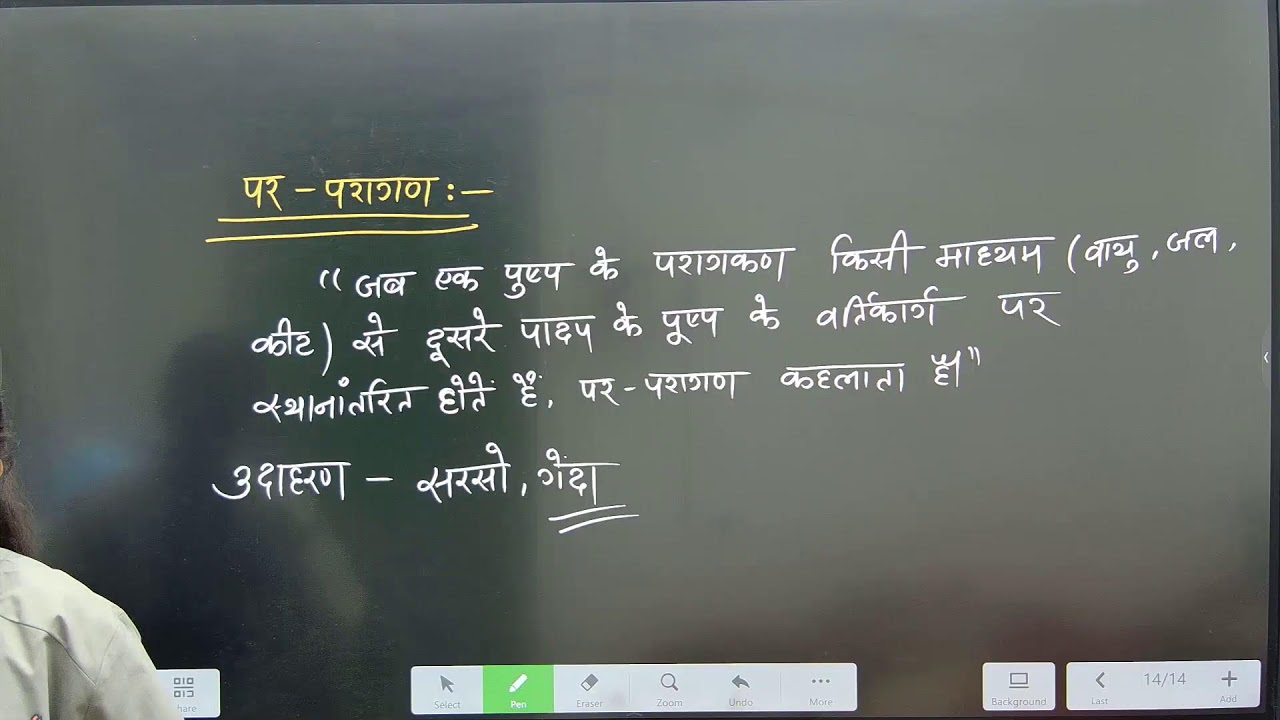 पर - परागण :-
“जब एक पुष्प के परागकण किसी माध्यम (वायु, जल,
कीट) से दूसरे पादप के पूष्प के वर्तिकार्ग पर
स्थानांतरित होतें हैं, पर-परागण कहलाता है।”
उदाहरण - सरसो, गेंदा
hare
Select
Pen
Eraser
Zoom
Undo
More
Background
Last
14/14
Add